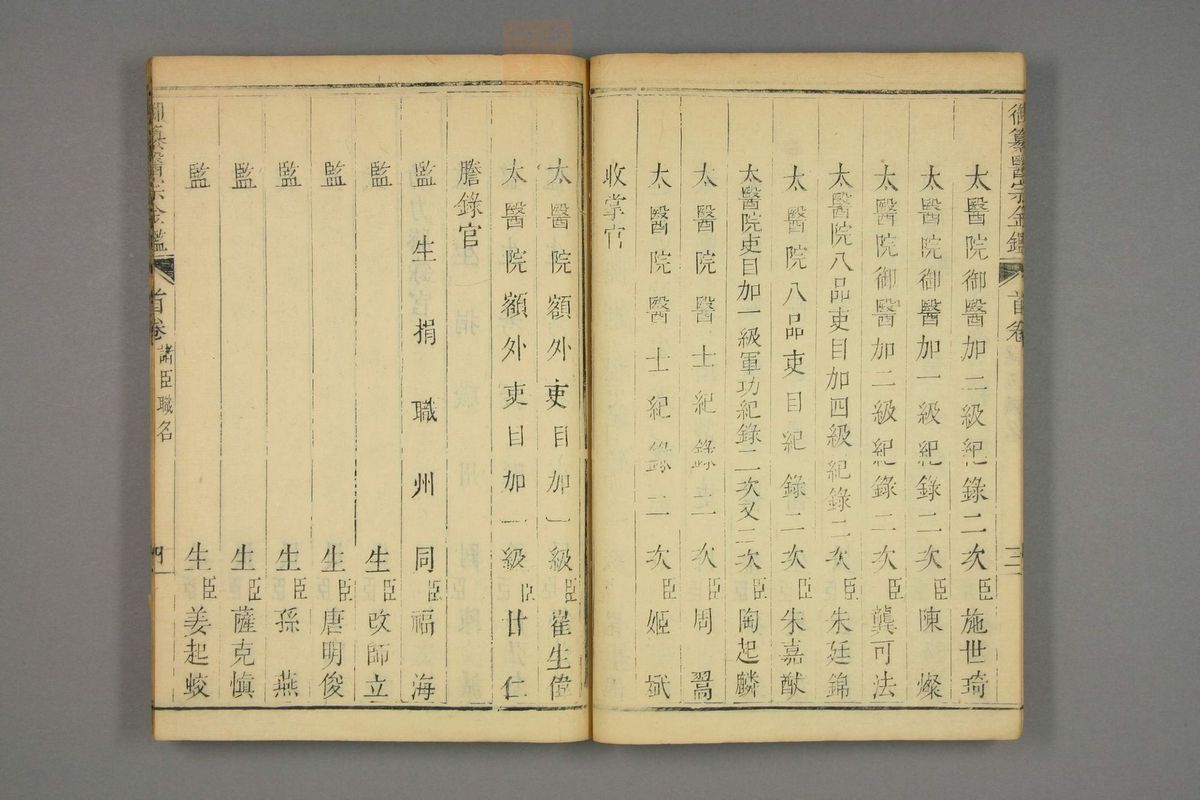 御纂醫宗金鑑 首卷 三
太醫院御醫加二級紀錄二次臣施世琦
太醫院御醫加一級紀錄二次臣陳燦
太醫院御醫加二級紀錄二次臣龔可法
太醫院八品吏目加四級紀錄二次臣朱廷錦
太醫院八品吏目紀錄二次臣朱嘉猷
太醫院吏目加一級軍功紀錄二次又二次臣陶起麟
太醫院醫士紀錄二次臣周翯
太醫院醫士紀錄二次臣姬斌
收掌官
太醫院額外吏目加一級臣崔生偉
太醫院額外吏目加一級臣甘仁
謄錄官
監生捐職州同臣福海
監生臣改師立
監生臣唐明俊
監生臣孫燕
監生臣薩克慎
監生臣姜起蛟
御纂醫宗金鑑 首卷 諸臣職名 四